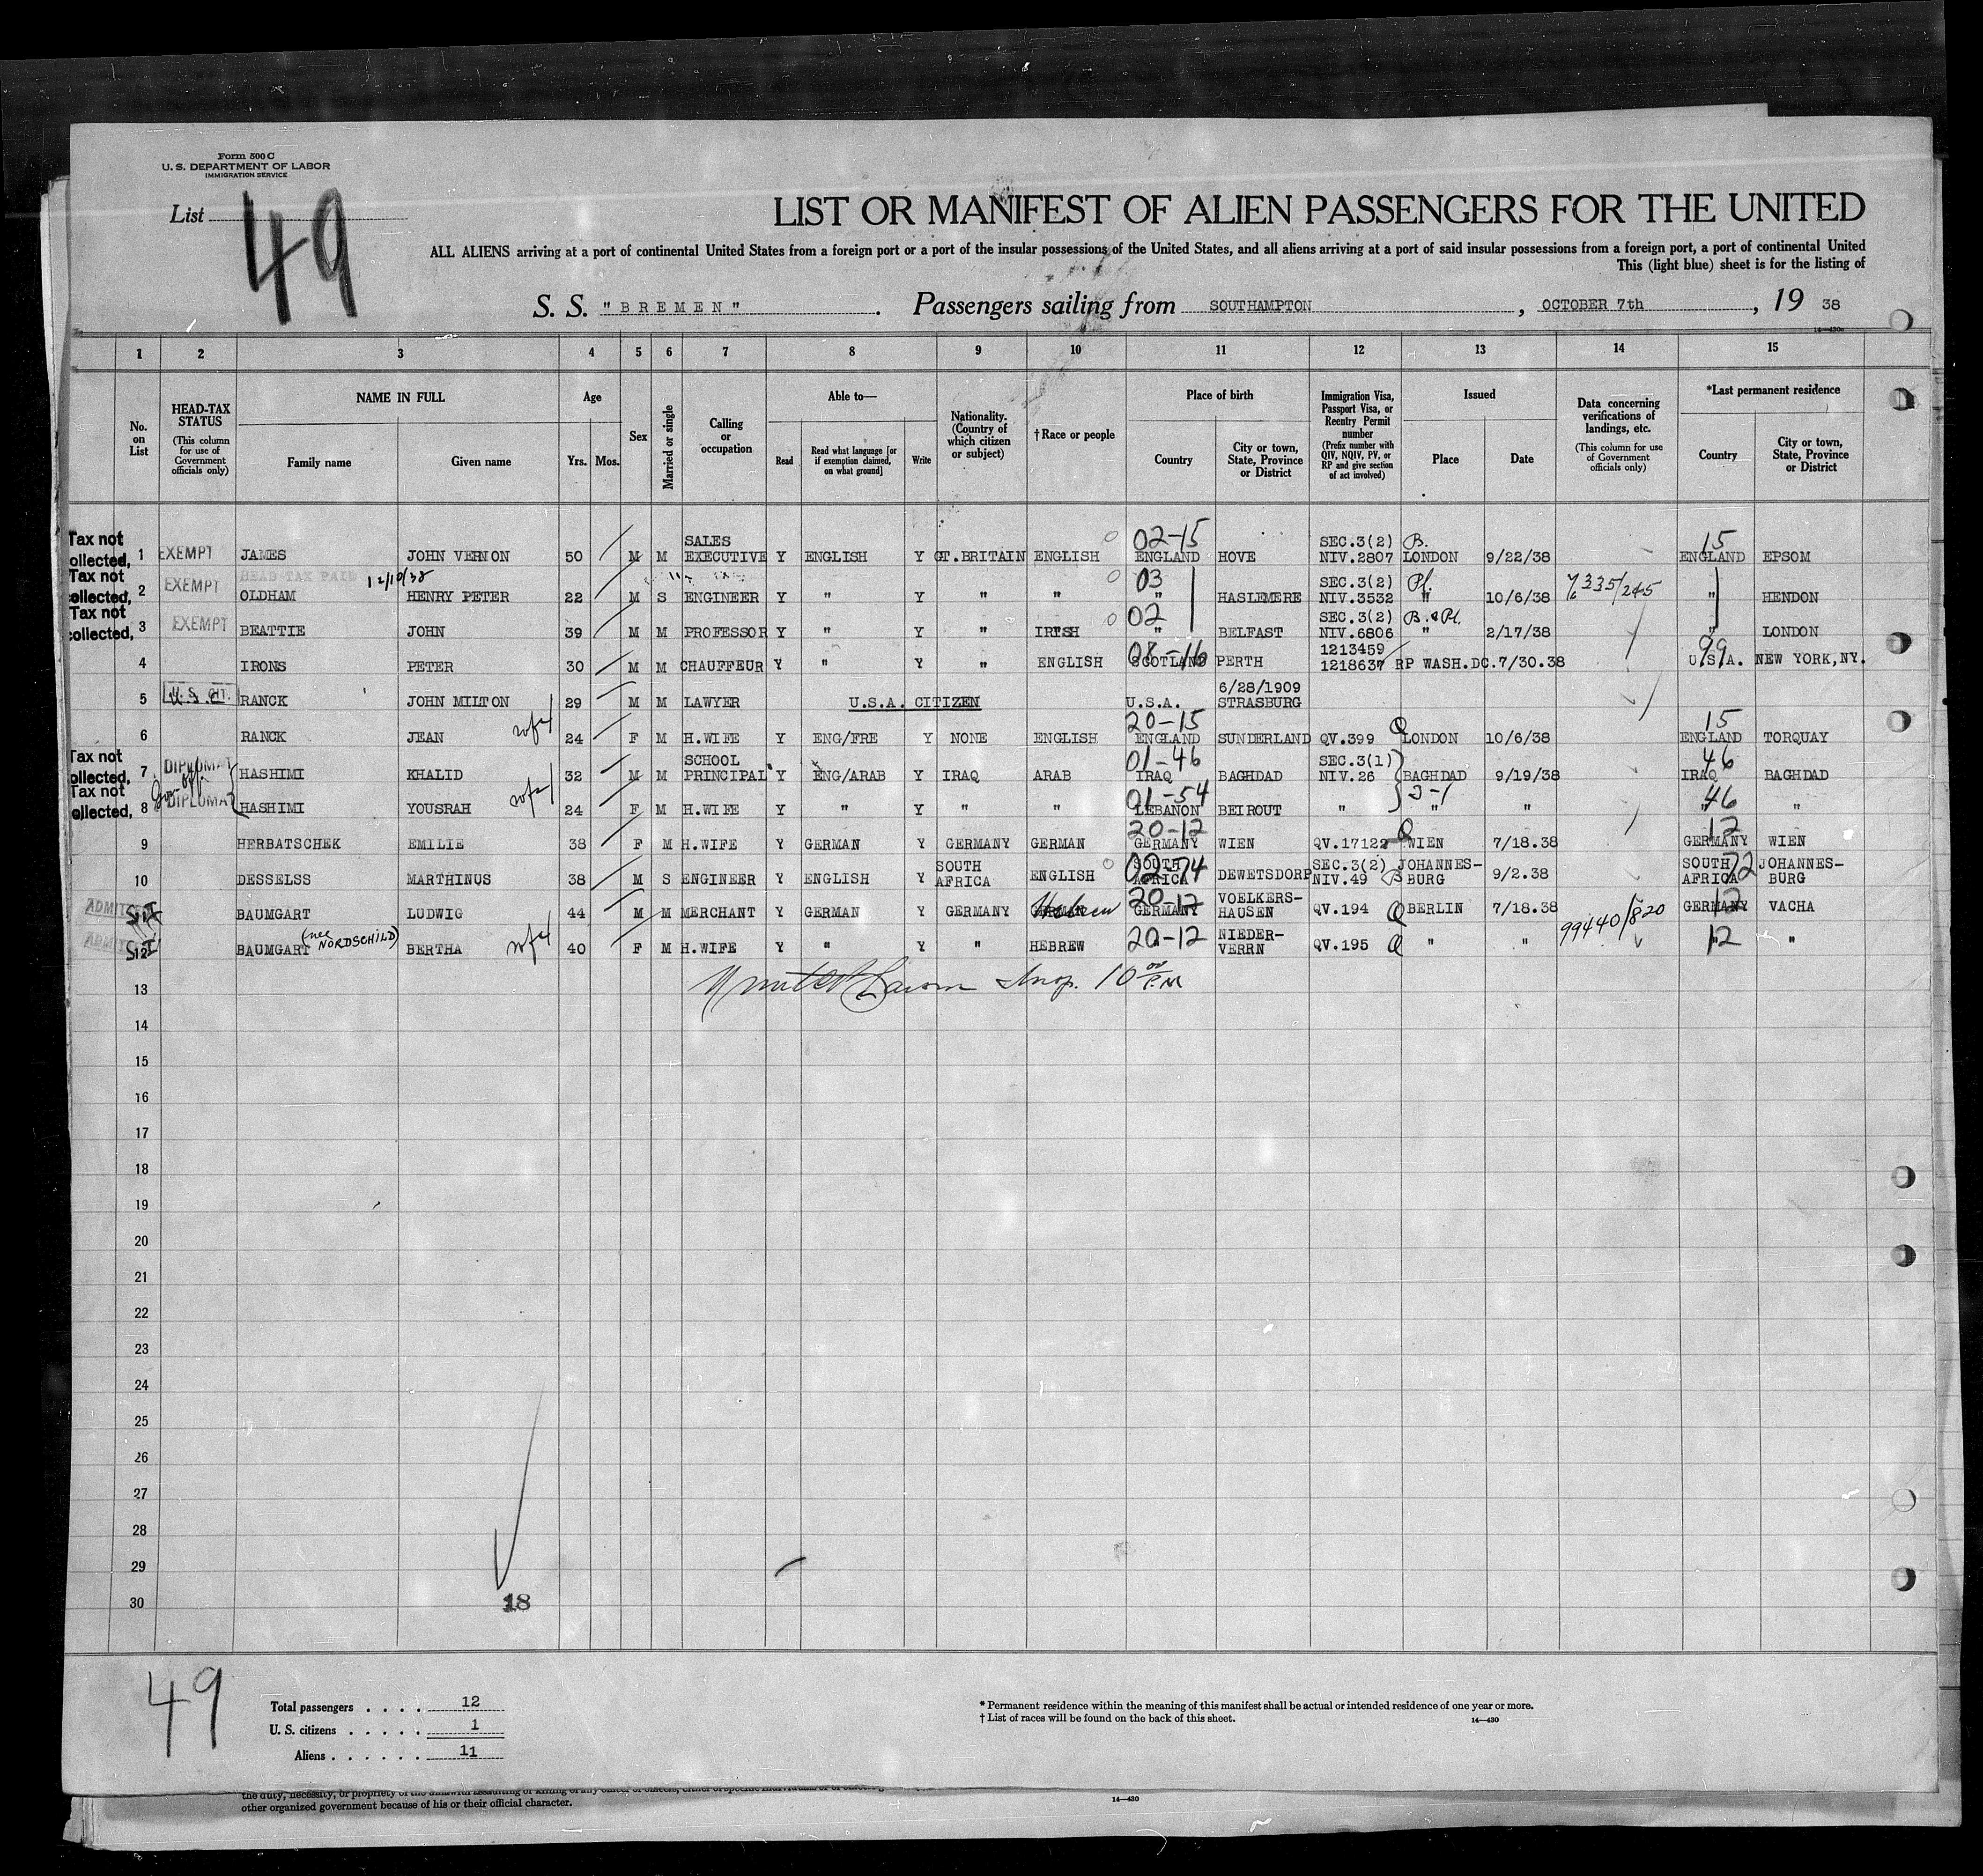 Form 500 C
U. S. DEPARTMENT OF LABOR
IMMIGRATION SERVICE
List 49
LIST OR MANIFEST OF ALIEN PASSENGERS FOR THE UNITED
ALL ALIENS arriving at a port of continental United States from a foreign port or a port of the insular possessions of the United States, and all aliens arriving at a port of said insular possessions from a foreign port, a port of continental United
This (light blue) sheet is for the listing of
S. S. "BREMEN". Passengers sailing from SOUTHAMPTON, OCTOBER 7th, 19 38
1 2 3 4 5 6 7 8 9 10 11 12 13 14 15
No. on List
HEAD-TAX STATUS (This column for use of Government officials only)
NAME IN FULL
Family name Given name
Age
Yrs. Mos.
Sex
Married or single
Calling or occupation
Able to—
Read Read what language [or if exemption claimed, on what ground] Write
Nationality. (Country of which citizen or subject)
†Race or people
Place of birth
Country City or town, State, Province or District
Immigration Visa, Passport Visa, or Reentry Permit number (Prefix number with QIV, NQIV, PV, or RP and give section of act involved)
Issued
Place Date
Data concerning verifications of landings, etc. (This column for use of Government officials only)
*Last permanent residence
Country City or town, State, Province or District
Tax not SALES 02-15 SEC.3(2) B. 15
ollected, 1 EXEMPT JAMES JOHN VERNON 50 M M EXECUTIVE Y ENGLISH Y GT.BRITAIN ENGLISH ENGLAND HOVE NIV.2807 LONDON 9/22/38 ENGLAND EPSOM
Tax not HEAD TAX PAID 12/10/38 03 SEC.3(2) Pl.
ollected, 2 EXEMPT OLDHAM HENRY PETER 22 M S ENGINEER Y " Y " " " HASLEMERE NIV.3532 " 10/6/38 7335/245 " HENDON
Tax not 02 SEC.3(2) B.&Pl.
collected, 3 EXEMPT BEATTIE JOHN 39 M M PROFESSOR Y " Y " IRISH " BELFAST NIV.6806 " 2/17/38 " LONDON
1213459
4 IRONS PETER 30 M M CHAUFFEUR Y " Y " ENGLISH SCOTLAND PERTH 1218637 RP WASH.DC.7/30.38 99 U.S.A. NEW YORK,NY.
6/28/1909
5 U.S. CIT. RANCK JOHN MILTON 29 M M LAWYER U.S.A. CITIZEN U.S.A. STRASBURG
20-15 15
6 RANCK JEAN 24 F M H.WIFE Y ENG/FRE Y NONE ENGLISH ENGLAND SUNDERLAND QV.399 Q LONDON 10/6/38 ENGLAND TORQUAY
Tax not DIPLOMAT SCHOOL 01-46 SEC.3(1) 46
ollected, 7 HASHIMI KHALID 32 M M PRINCIPAL Y ENG/ARAB Y IRAQ ARAB IRAQ BAGHDAD NIV.26 BAGHDAD 9/19/38 IRAQ BAGHDAD
Tax not DIPLOMAT 01-54 3-1 46
ollected, 8 HASHIMI YOUSRAH 24 F M H.WIFE Y " Y " " LEBANON BEIROUT " " " " "
20-12 Q 12
9 HERBATSCHEK EMILIE 38 F M H.WIFE Y GERMAN Y GERMANY GERMAN GERMANY WIEN QV.17122 WIEN 7/18.38 GERMANY WIEN
SOUTH SOUTH 02-74 SEC.3(2) JOHANNES- SOUTH 72 JOHANNES-
10 DESSELSS MARTHINUS 38 M S ENGINEER Y ENGLISH Y AFRICA ENGLISH AFRICA DEWETSDORP NIV.49 B BURG 9/2.38 AFRICA BURG
ADMITTED SI 20-12 VOELKERS- 12
11 BAUMGART LUDWIG 44 M M MERCHANT Y GERMAN Y GERMANY GERMAN Hebrew GERMANY HAUSEN QV.194 Q BERLIN 7/18.38 GERMANY VACHA
ADMITTED SI (nee NORDSCHILD) 20-12 NIEDER- 99440/820 12
12 BAUMGART BERTHA 40 F M H.WIFE Y " Y " HEBREW VERRN QV.195 Q " " " "
13 Insp. 10 00 P.M
14
15
16
17
18
19
20
21
22
23
24
25
26
27
28
29
30
18
49
Total passengers . . . . 12
U. S. citizens . . . . . 1
Aliens . . . . . . 11
* Permanent residence within the meaning of this manifest shall be actual or intended residence of one year or more.
† List of races will be found on the back of this sheet. 14—430
other organized government because of his or their official character. 14—430